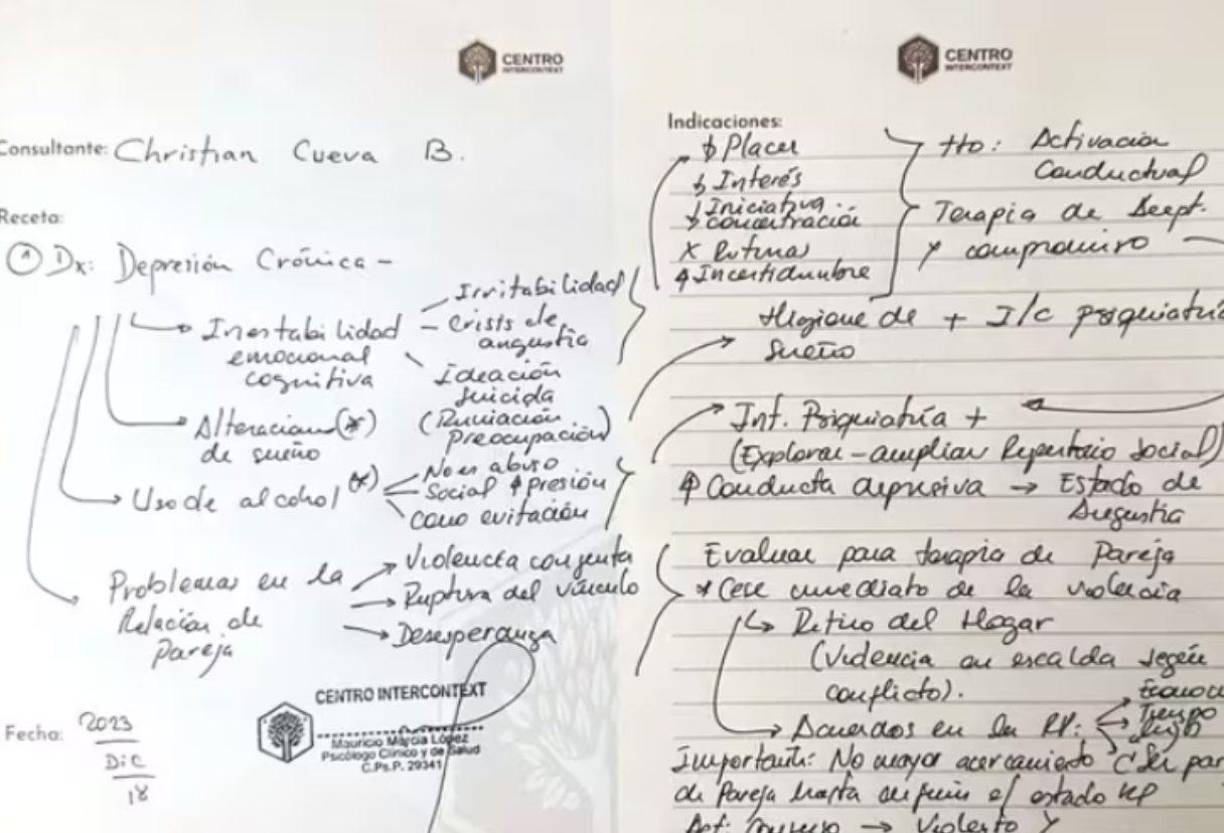 CENTRO
INTERCONTEXT
Consultante: Christian Cueva B.
Receta:
① Dx: Depresión Crónica -
Inestabilidad
emocional
cognitiva
- Irritabilidad
- Crisis de
angustia
Ideación
suicida
(Rumiación
Preocupación)
Alteraciones (*)
de sueño
Uso de alcohol (*)
No es abuso
Social ↑ presión
como evitación
Problemas en la
Relación de
Pareja
Violencia conjunta
Ruptura del vínculo
Desesperanza
Fecha: 2023
Dic
18
CENTRO INTERCONTEXT
Mauricio López
Psicólogo Clínico y de Salud
C.Ps.P. 29341
CENTRO
INTERCONTEXT
Indicaciones:
↓ Placer
↓ Interés
↓ Iniciativa
↓ concentración
X Rutinas
↑ Incertidumbre
tto: Activación
Conductual
Terapia de Acept.
y compromiso
Higiene de + I/c psiquiatría
Sueño
Int. Psiquiatría +
(Explorar - ampliar Repertorio Social)
↑ Conducta depresiva → Estado de
Angustia
Evaluar para terapia de Pareja
* Cese inmediato de la violencia
↳ Retiro del Hogar
(Violencia en escalda según
conflicto).
→ Acuerdos en la RP:
Tiempo
Importante: No mayor acercamiento
de Pareja hasta el estado
→ Violento y